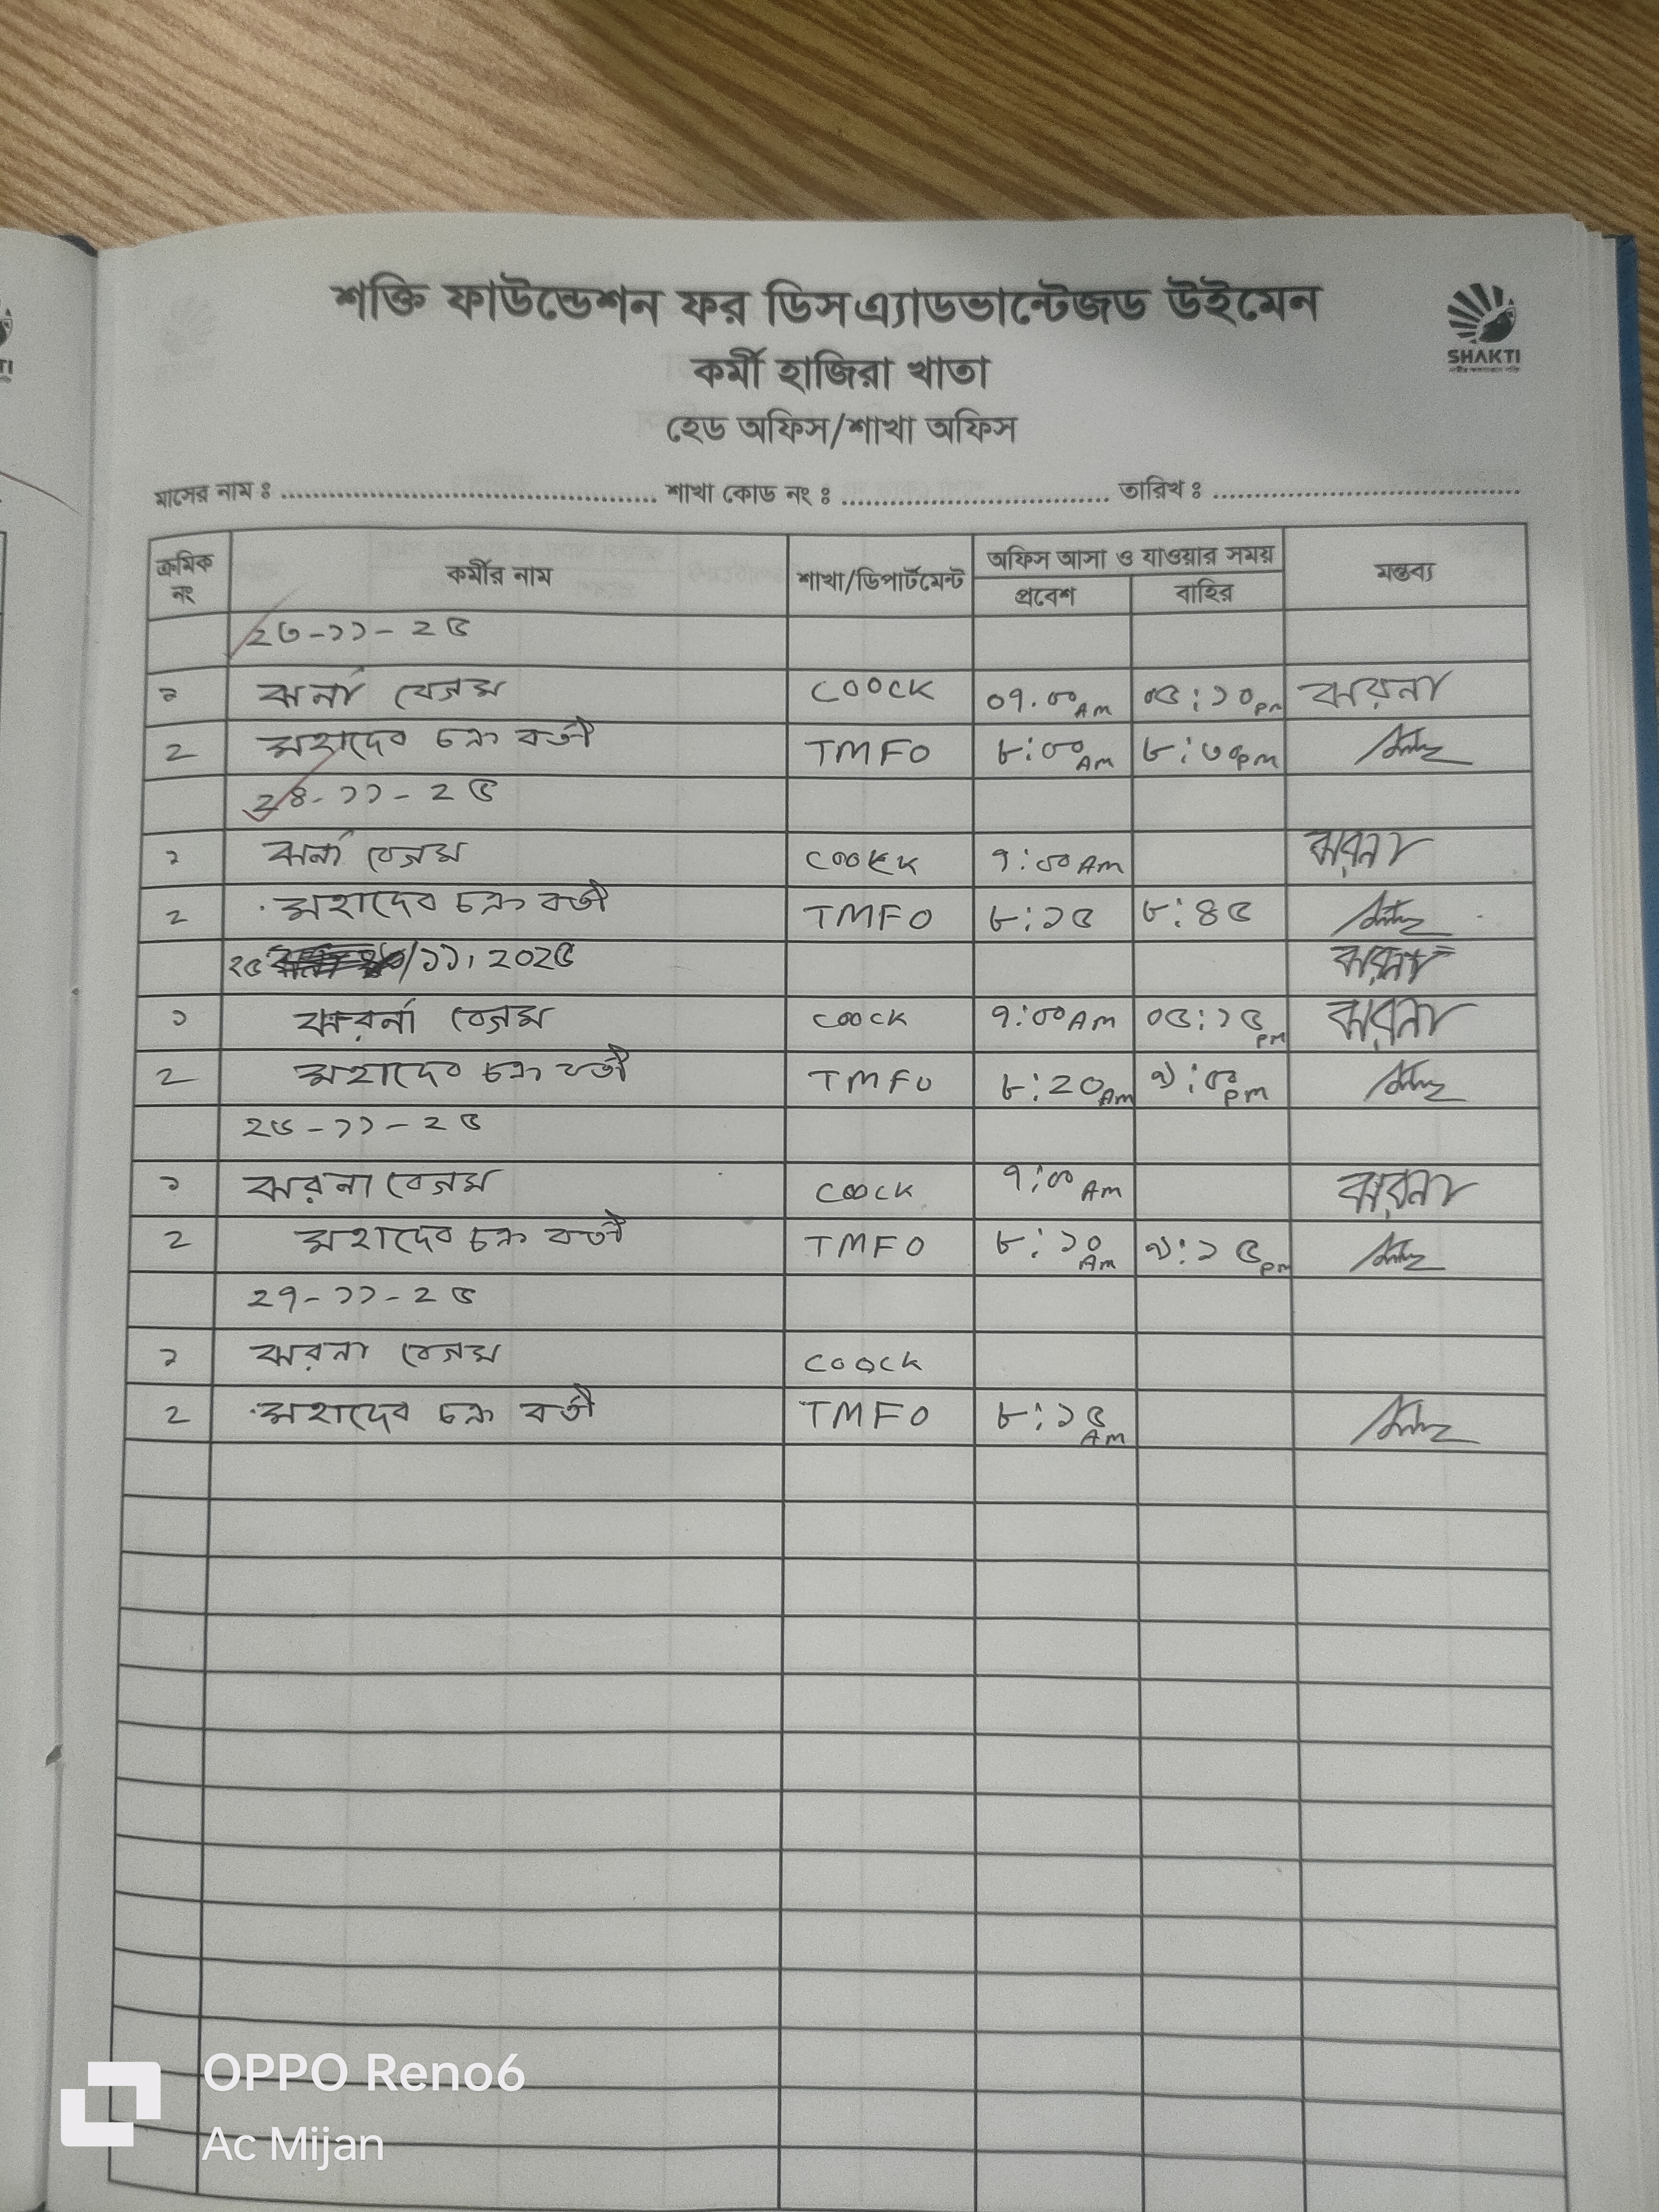 শক্তি ফাউন্ডেশন ফর ডিসএ্যাডভান্টেজড উইমেন
SHAKTI
কর্মী হাজিরা খাতা
হেড অফিস/শাখা অফিস
মাসের নাম ঃ শাখা কোড নং ঃ তারিখ ঃ
ক্রমিক নং কর্মীর নাম শাখা/ডিপার্টমেন্ট অফিস আসা ও যাওয়ার সময় মন্তব্য
প্রবেশ বাহির
২৩-১১-২৫
১ ঝর্না বেগম COOCK ০৭.০০ AM ০৫:১০ pm ঝরনা
২ মহাদেব চক্র বর্তী TMFO ৮:০০ AM ৮:৩০ pm
২৪-১১-২৫
১ ঝর্না বেগম COOCK ৭:০০ AM ঝরনা
২ মহাদেব চক্র বর্তী TMFO ৮:১৫ ৮:৪৫
২৫/১১, ২০২৫ ঝরনা
১ ঝরর্না বেগম COOCK ৭:০০ AM ০৫:১৫ pm ঝরনা
২ মহাদেব চক্র বর্তী TMFO ৮:২০ AM ৯:৫০ pm
২৬-১১-২৫
১ ঝরনা বেগম COOCK ৭:০০ AM ঝরনা
২ মহাদেব চক্র বর্তী TMFO ৮:১০ AM ৯:১৫ pm
২৭-১১-২৫
১ ঝরনা বেগম COOCK
২ মহাদেব চক্র বর্তী TMFO ৮:১৫ AM
OPPO Reno6
Ac Mijan